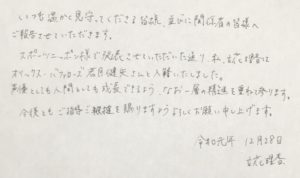 いつも温かく見守ってくださる皆様、並びに関係者の皆様へ
ご報告させていただきます。
スポーツニッポン様で発表させていただいた通り、私、
オリックス・バファローズ 若月健矢さんと入籍いたしました。
声優としても人間としても成長できるよう、なお一層の精進を重ねて参ります。
今後ともご指導ご鞭撻を賜りますようよろしくお願い申し上げます。
令和元年 12月28日